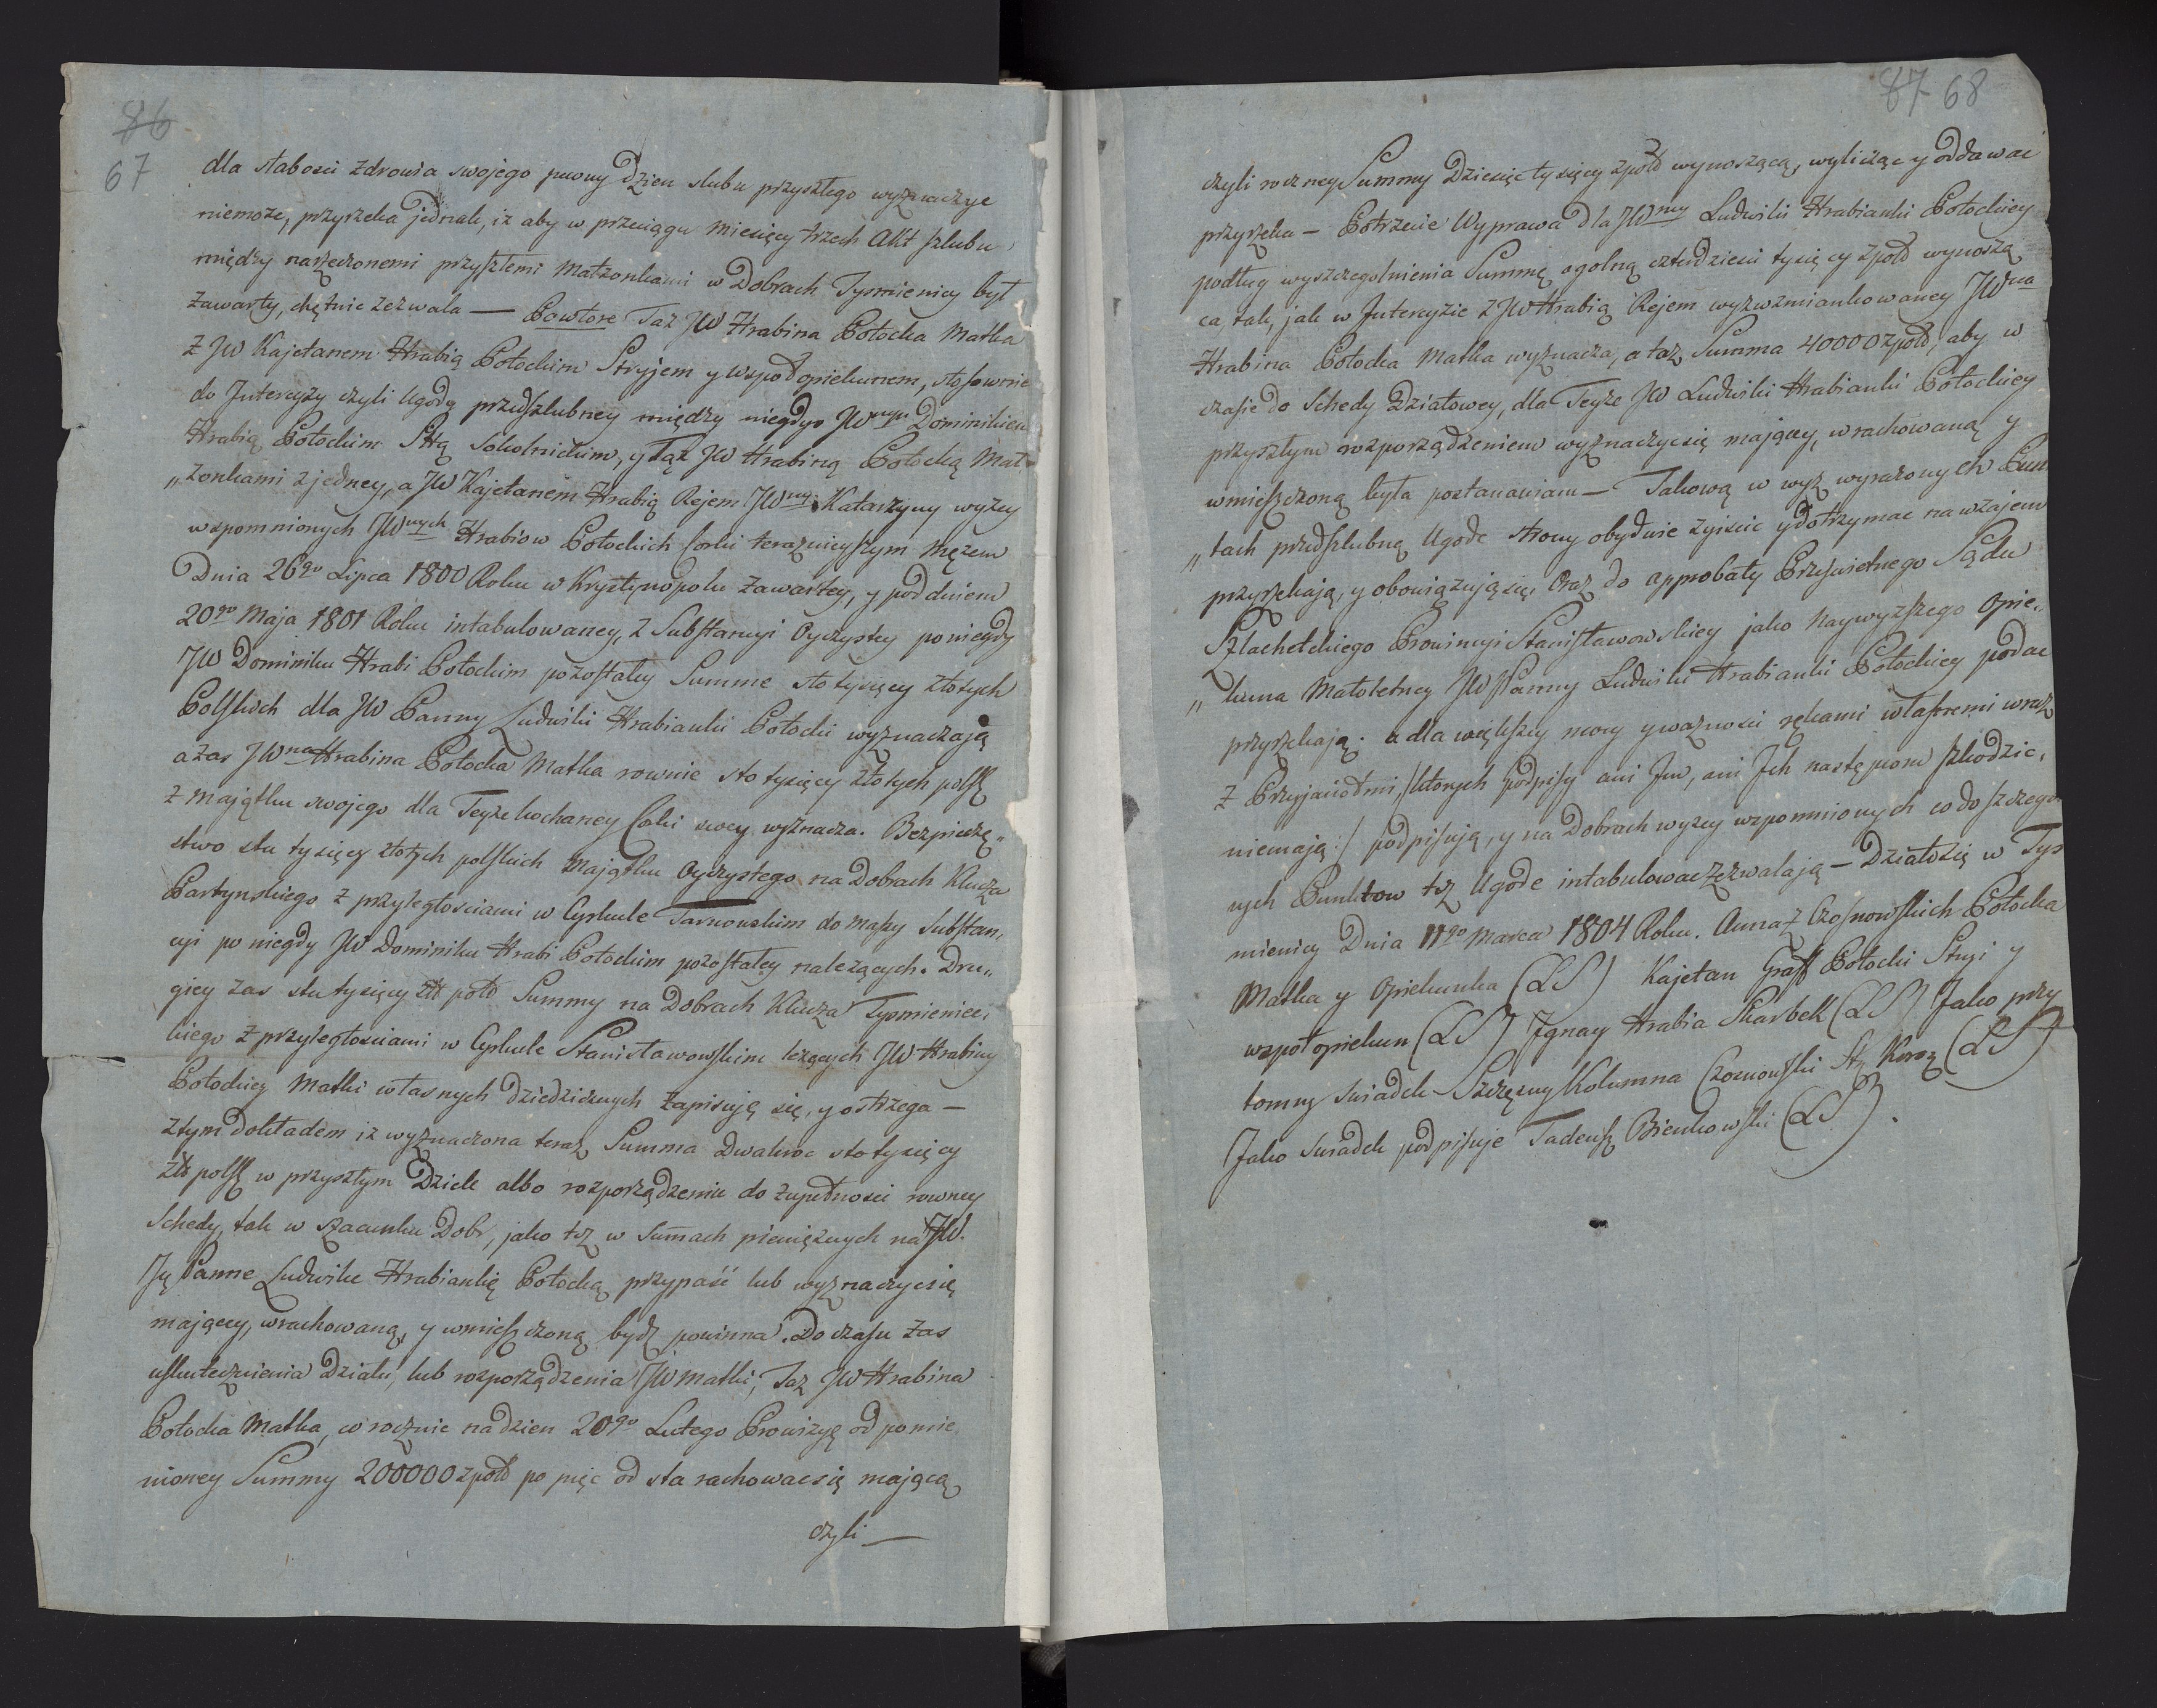 86
67
dla słabosci zdrowia swojego pewny dzien slubu przyszłego wyznaczyc
niemoże, przyrzeka jednak, iz aby w przeciągu miesięcy trzech Akt szlubu
między narzeczonemi przyszłemi Małżonkami w Dobrach Tysmienicy był
zawarty, chętnie zezwala — Powtore Taż JW Hrabina Potocka Matka
z JW Kajetanem Hrabią Potockim Stryjem y Wspołopiekunem, stosownie
do Intercyzy czyli Ugodą przedszlubney między niegdyś JWnym Dominikiem
Hrabią Potockim Sttą Sokolnickim, y Tąż JW Hrabiną Potocką Mał„
„żonkami z jedney, a JW Kajetanem Hrabią Rejem JWny Katarzyny wyżey
wspomnionych JWnych Hrabiow Potockich Corki teraznieyszym Mężem
Dnia 26go Lipca 1800 Roku w Krystynopolu zawartey, y pod dniem
20go Maja 1801 Roku intabulowaney, z Substancyi Oyczystey po niegdy
JW Dominiku Hrabi Potockim pozostałey Summe sto tysięcy złotych
Polskich dla JW Panny Ludwiki Hrabianki Potocki wyznaczają
a zas JWna Hrabina Potocka Matka rownie sto tysięcy złotych polsk
z majątku swojego dla Teyże kochaney Corki swey wyznacza. Bezpieczę„
stwo stu tysięcy złotych polskich Majątku Oyczystego na Dobrach Klucza
Partynskiego z przyległosciami w Cyrkule Tarnowskim do massy Substan„
cyi po niegdy JW Dominiku Hrabi Potockim pozostałey należących. Dru„
giey zas stu tysięcy zł pols Summy na Dobrach Klucza Tysmieniec„
kiego z przyległosciami w Cyrkule Stanisławowskim leżących JW Hrabiny
Potockiey Matki własnych dziedzicznych zapisuję się, y ostrzega —
z tym dokładem iż wyznaczona teraz Summa Dwakroc sto tysięcy
zł polsk w przyszłym Dziele albo rozporządzeniu do zupełnosci rowney
Schedy, tak w szacunku Dobr, jako też w Summach pieniężnych na JW.
Ję Panne Ludwike Hrabiankię Potocką przypaść lub wyznaczycsię
mającey, wrachowaną, y wmieszczoną bydź powinna. Do czasu zas
uskutecznienia Działu, lub rozporządzenia JW matki, Taż JW Hrabina
Potocka Matka, co rocznie na dzien 20go Lutego Prowizyę od pomie„
nioney Summy 200000 zpols po pięc od sta rachowac się mającą
czyli —
87 68
czyli roczney Summy Dziesięc tysięcy zpols wynoszącą, wyliczac y oddawac
przyrzeka — Potrzecie Wyprawa dla JWny Ludwiki Hrabianki Potockiey
podług wyszczegolnienia Summę ogolną czterdziesci tysięcy zpols wynoszą
ca, tak, jak w Intercyzie z JW Hrabią Rejem wyżwzmiankowaney JWna
Hrabina Potocka Matka wyznacza, a taż Summa 40000 zpols, aby w
czasie do Schedy Działowey, dla Teyże JW Ludwiki Hrabianki Potockiey
przyszłym rozporządzeniem wyznaczycsię mającey, wrachowaną y
wmieszczoną była postanawiam — Takową w wyż wyrażonych Pun
„ktach przedszlubną Ugode strony obydwie ziscic y dotrzymac nawzajem
przyrzekają, y obowiązują się. Oraz do approbaty Prześwietnego Sądu
Szlachetckiego Prowincyi Stanisławowskiey jako Naywyższego Opie„
„kuna Małoletney JW Panny Ludwiki Hrabianki Potockiey podac
przyrzekają. a dla większey mocy y ważnosci rękami własnemi wraz
z Przyjaciołmi, /: ktorych podpisy ani Im, ani Ich następcom szkodzic„
niemają :/ podpisują, y na Dobrach wyżey wspomnionych co do szczegol
nych Punktow też Ugode intabulowac zezwalają — Działosię w Tys
mienicy Dnia 11go Marca 1804 Roku. Anna z Czosnowskich Potocka
Matka y Opiekunka (LS) Kajetan Graff Potocki Stryi y
wspołopiekun (LS) Ignacy Hrabia Skarbek (LS) Jako przy
tomny swiadek Szczęsny Kolumna Czosnowski St Koro (LS)
Jako swiadek podpisuje Tadeusz Bienkowski (LS).